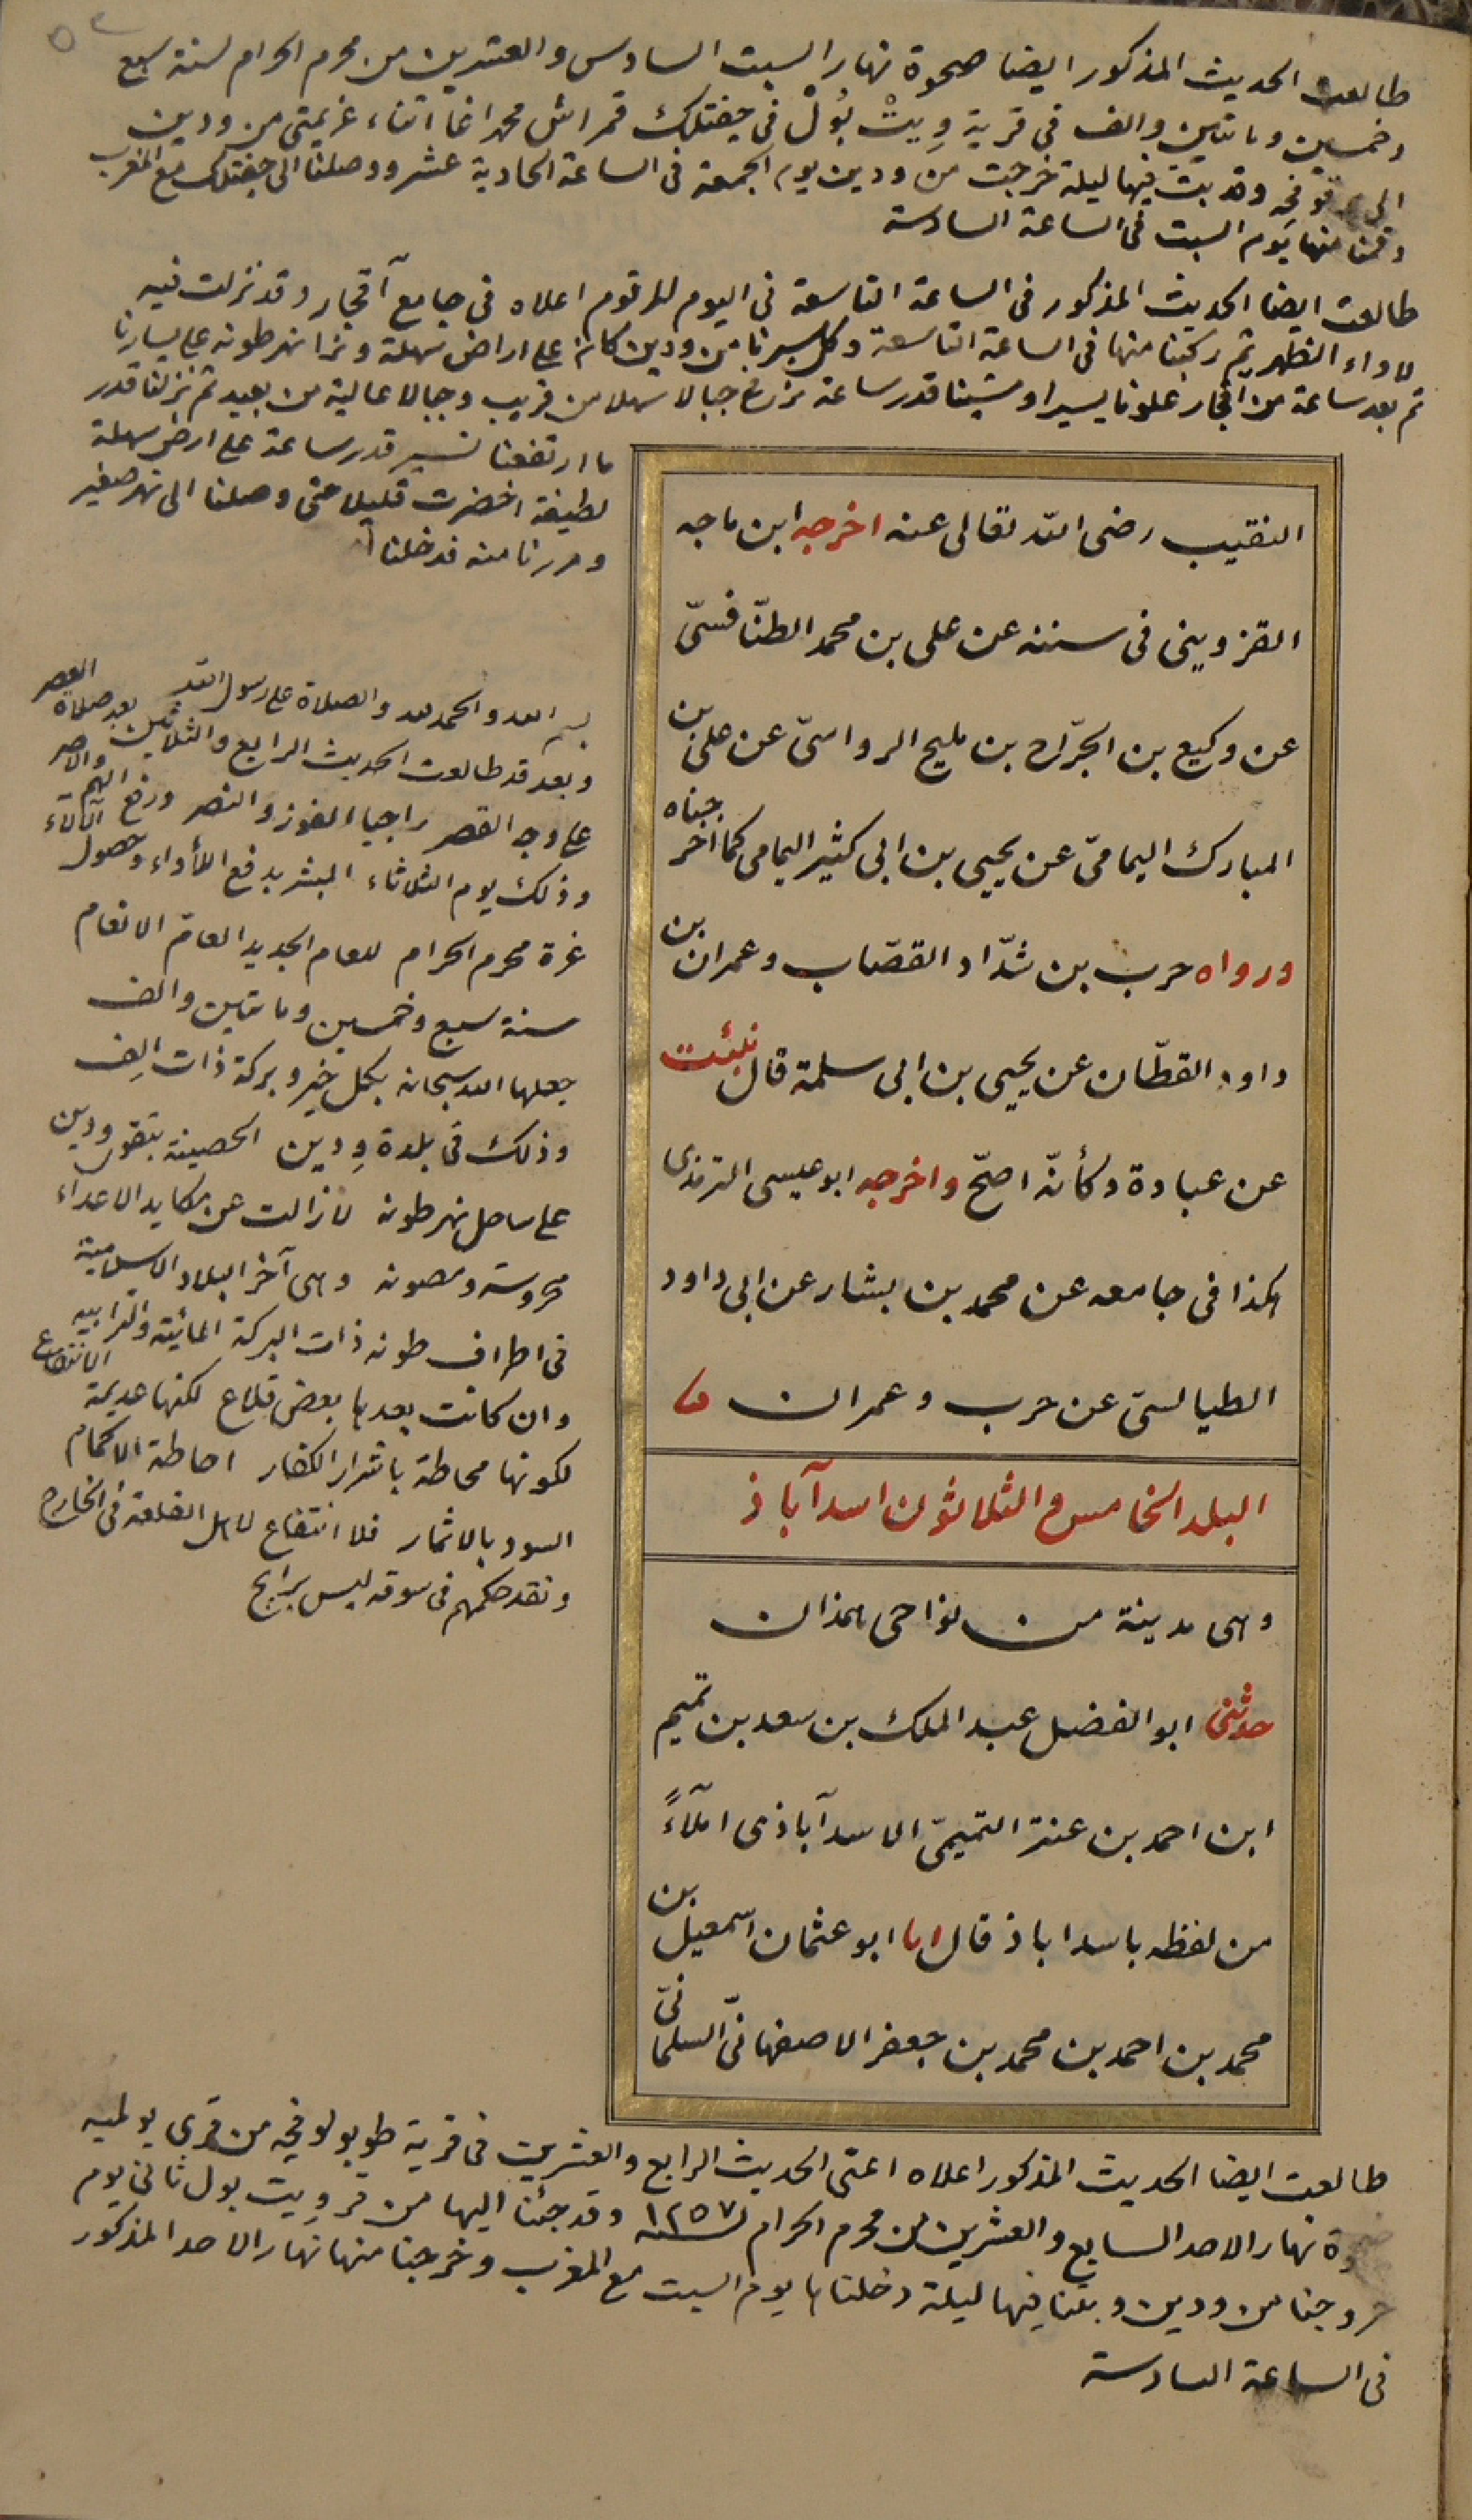 طالعت الحديث المذكور ايضا صحوة نهار السبت السادس والعشرين من محرم الحرام لسنة سبع
وخمسين وماتين والف فى قرية وِيتْ بُولْ فى جفتلك قمراش محمد اغا اثناء عزيمتى من ودين
الى قوفچه وقد بتّ فيها ليلة خرجت من ودين يوم الجمعة فى الساعة الحادية عشر ووصلنا الى جفتلك مع المغرب
وقمنا منها يوم السبت فى الساعة السادسة
طالعت ايضا الحديث المذكور فى الساعة التاسعة فى اليوم المرقوم اعلاه فى جامع آقجار وقد نزلت فيه
لاداء الظهر ثم ركبنا منها فى الساعة التاسعة وكل سيرنا من ودين كان على اراض سهلة ونرا نهر طونه على يسارنا
ثم بعد ساعة من اقجار علونا يسيرا ومشينا قدر ساعة نرى جبالا سهلا من قريب وجبالا عالية من بعيد ثم نزلنا قدر
ما ارتفعنا نسير قدر ساعة على ارض سهلة
لطيفة اخضرت قليلا حتى وصلنا الى نهر صغير
ومررنا منه فدخلنا
النقيب رضى الله تعالى عنه اخرجه ابن ماجه
القزوينى فى سننه عن على بن محمد الطنّافسىّ
عن وكيع بن الجرّاح بن مليح الرواسىّ عن على بن
المبارك اليمامىّ عن يحيى بن ابى كثير اليمامى كما اخرجناه
ورواه حرب بن شدّاد القصّاب وعمران بن
داود القطّان عن يحيى بن ابى سلمة قال نبئت
عن عبادة وكأنّه اصحّ واخرجه ابو عيسى الترمذى
هكذا فى جامعه عن محمد بن بشار عن ابى داود
الطيالسىّ عن حرب وعمران
البلد الخامس والثلاثون اسدآباذ
وهى مدينة من نواحى همذان
حدثنى ابو الفضل عبد الملك بن سعد بن تميم
ابن احمد بن عنتر التميمىّ الاسدآباذى املآءً
من لفظه باسداباذ قال انا ابو عثمان اسمعيل بن
محمد بن احمد بن محمد بن جعفر الاصفهانىّ السلمانىّ
بسم الله والحمد لله والصلاة على رسول الله
وبعد قد طالعت الحديث الرابع والثلاثين بعد صلاة العصر
على وجه القصر راجيا الفوز والنصر ورفع الهم والاصر
وذلك يوم الثلاثاء المبشر بدفع الأداء وحصول الآلآء
غرة محرم الحرام للعام الجديد العام الانعام
سنة سبع وخمسين وماتين والف
جعلها الله سبحانه بكل خير وبركة ذات الف
وذلك فى بلدة وِدين الحصينة بتقوى ودين
على ساحل نهر طونه لا زالت عن مكايد الاعداء
محروسة ومصونه وهى آخر البلاد الاسلامية
فى اطراف طونه ذات البركة المائية والترابيه
وان كانت بعدها بعض قلاع لكنها عديمة الانتفاع
لكونها محاطة باشرار الكفار احاطة الاكمام
السود بالاثمار فلا انتفاع لاهل القلعة فى الخارج
ونقد حكمهم فى سوقه ليس برايج
طالعت ايضا الحديث المذكور اعلاه اعنى الحديث الرابع والعشرين فى قرية طوبولوفچه من قرى بولميه
ضحوة نهار الاحد السابع والعشرين من محرم الحرام لسنة ١٢٥٧ وقد جئنا اليها من قر ويت بول ثانى يوم
خروجنا من ودين وبتنا فيها ليلة دخلناها يوم السبت مع المغرب وخرجنا منها نهار الاحد المذكور
فى الساعة السادسة